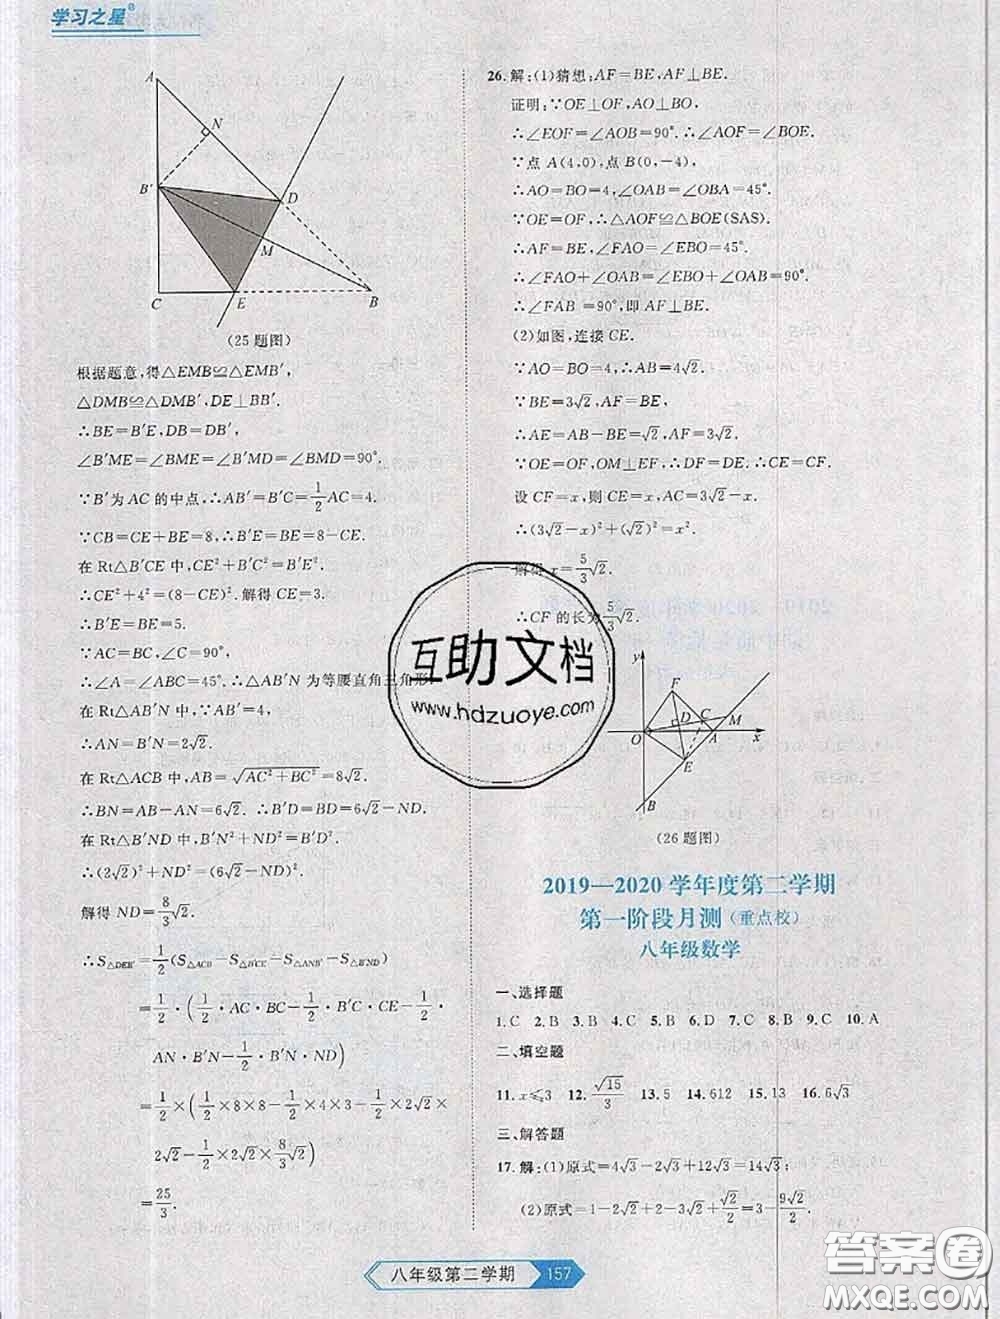 学习之星®
A
N
B′
D
M
C
E
B
(25 题图)
根据题意,得△EMB≌△EMB′,
△DMB≌△DMB′,DE⊥BB′.
∴BE=B′E,DB=DB′,
∠B′ME=∠BME=∠B′MD=∠BMD=90°.
∵B′为 AC 的中点,∴AB′=B′C=1/2AC=4.
∵CB=CE+BE=8,∴B′E=BE=8-CE.
在 Rt△B′CE 中,CE²+B′C²=B′E²,
∴CE²+4²=(8-CE)².解得 CE=3.
∴B′E=BE=5.
∵AC=BC,∠C=90°,
∴∠A=∠ABC=45°.∴△AB′N 为等腰直角三角形.
在 Rt△AB′N 中,∵AB′=4,
∴AN=B′N=2√2.
在 Rt△ACB 中,AB=√(AC²+BC²)=8√2.
∴BN=AB-AN=6√2.∴B′D=BD=6√2-ND.
在 Rt△B′ND 中,B′N²+ND²=B′D².
∴(2√2)²+ND²=(6√2-ND)².
解得 ND=8/3√2.
∴S△DEB′=1/2(S△ACB-S△B′CE-S△ANB′-S△B′ND)
=1/2·(1/2·AC·BC-1/2·B′C·CE-1/2·
AN·B′N-1/2·B′N·ND)
=1/2×(1/2×8×8-1/2×4×3-1/2×2√2×
2√2-1/2×2√2×8/3√2)
=25/3.
26.解:(1)猜想:AF=BE,AF⊥BE.
证明:∵OE⊥OF,AO⊥BO,
∴∠EOF=∠AOB=90°.∴∠AOF=∠BOE.
∵点 A(4,0),点 B(0,-4),
∴AO=BO=4,∠OAB=∠OBA=45°.
∵OE=OF,∴△AOF≌△BOE(SAS).
∴AF=BE,∠FAO=∠EBO=45°.
∴∠FAO+∠OAB=∠EBO+∠OAB=90°.
∴∠FAB=90°,即 AF⊥BE.
(2)如图,连接 CE.
∵AO=BO=4,∴AB=4√2.
∵BE=3√2,AF=BE,
∴AE=AB-BE=√2,AF=3√2.
∵OE=OF,OM⊥EF,∴DF=DE.∴CE=CF.
设 CF=x,则 CE=x,AC=3√2-x.
∴(3√2-x)²+(√2)²=x².
解得 x=5/3√2.
∴CF 的长为5/3√2.
y
F
D
C
M
O
A
x
E
B
(26 题图)
2019—2020 学年度第二学期
第一阶段月测(重点校)
八年级数学
一、选择题
1.C 2.B 3.C 4.C 5.B 6.D 7.C 8.C 9.C 10.A
二、填空题
11.x≤3 12.√15/3 13.5 14.612 15.12 16.6√3
三、解答题
17.解:(1)原式=4√3-2√3+12√3=14√3;
(2)原式=1-2√2+2-3√2+√2/2=3-9√2/2.
八年级第二学期 157
互助文档
www.hdzuoye.com
答案圈
MXQE.COM